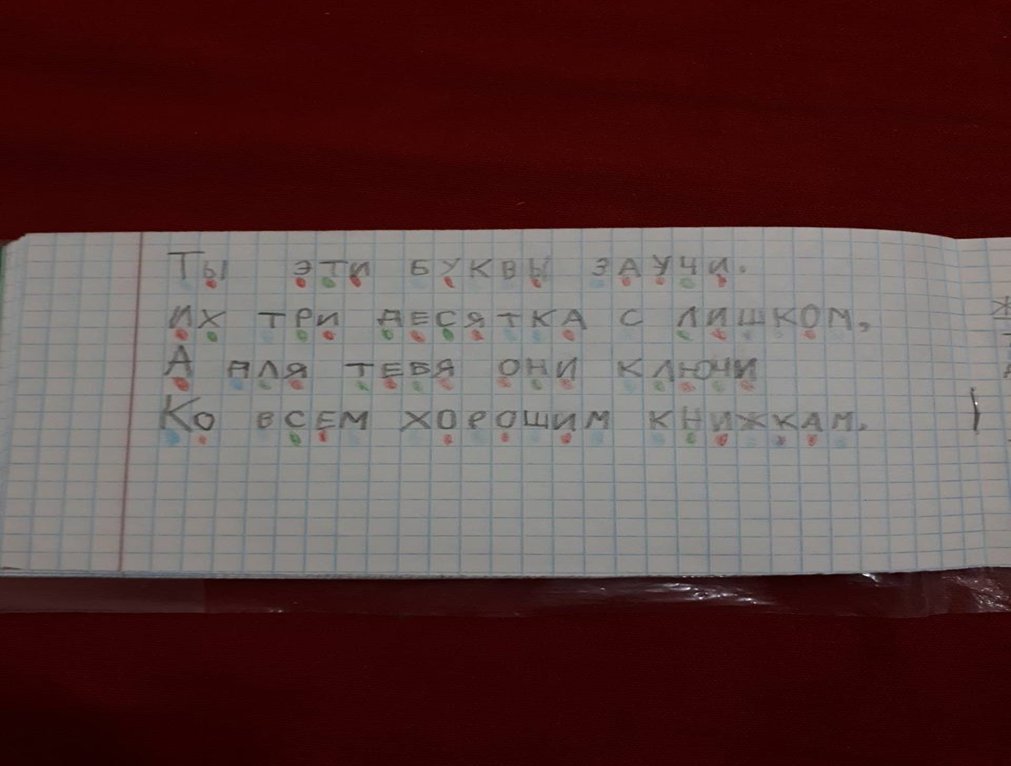 Ты эти буквы заучи.
Их три десятка с лишком,
А для тебя они ключи
Ко всем хорошим книжкам.